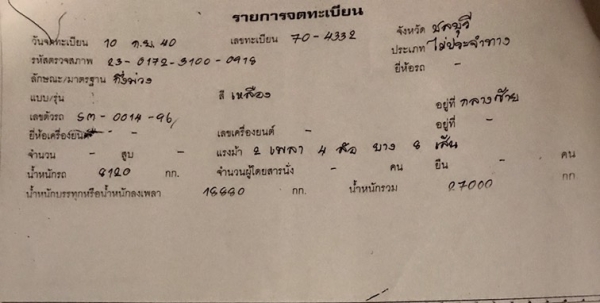 รายการจดทะเบียน
วันจดทะเบียน 10 ก.ย. 40 เลขทะเบียน 70-4332 จังหวัด ชลบุรี
รหัสตรวจสภาพ 23-0172-3100-0918 ประเภท ไม่ประจำทาง
ลักษณะ/มาตรฐาน กึ่งพ่วง ยี่ห้อรถ -
แบบ/รุ่น สี เหลือง
เลขตัวรถ SM-0014-96 อยู่ที่ กลางซ้าย
ยี่ห้อเครื่องยนต์ เลขเครื่องยนต์ - อยู่ที่ -
จำนวน - สูบ - แรงม้า 2 เพลา 4 ล้อ ยาง 8 เส้น
น้ำหนักรถ 8120 กก. จำนวนผู้โดยสารนั่ง - คน ยืน - คน
น้ำหนักบรรทุกหรือน้ำหนักลงเพลา 18880 กก. น้ำหนักรวม 27000 กก